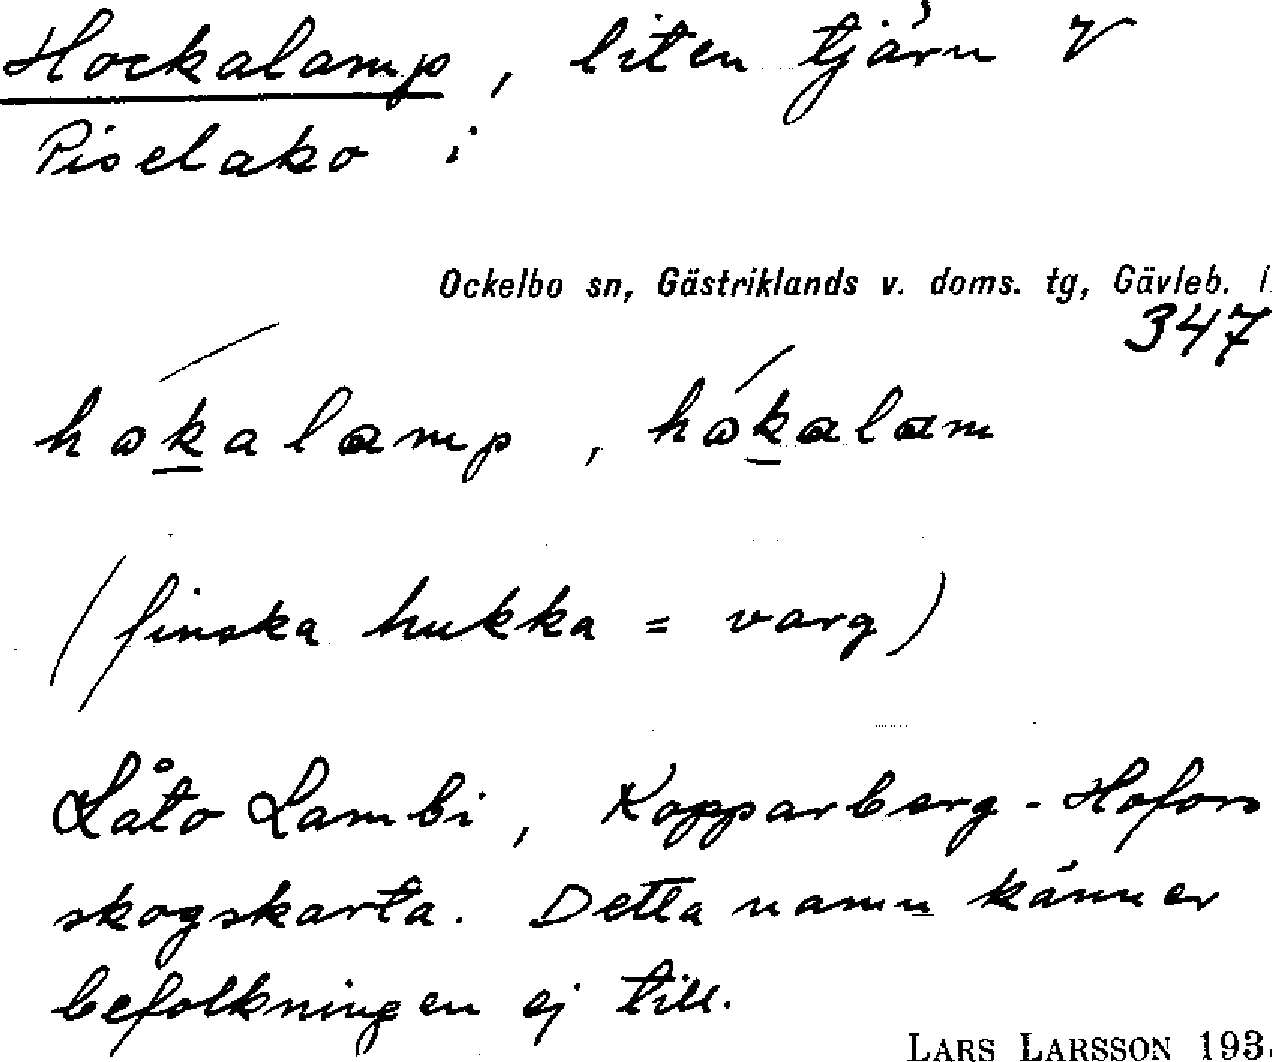 Hockalamp, liten tjärn V
Piselako i
Ockelbo sn, Gästriklands v. doms. tg, Gävleb. l.
347
hokalamp, hókalam
(finska hukka = varg)
Låto Lambi, Kopparberg-Hofors
skogskarta. Detta namn känner
befolkningen ej till.
LARS LARSSON 193